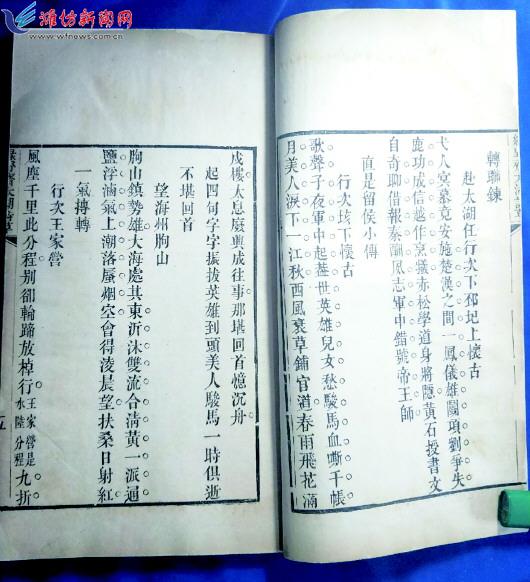 潍坊新闻网
www.wfnews.com.cn
轉聯鍊
赴太湖任行次下邳圯上懷古
弋人冥慕竟安施楚漢之間一鳳儀雄圖項劉爭失
鹿功成信越作烹犧赤松學道身將隱黃石授書文
自奇聊借報秦酬夙志軍中錯號帝王師
直是留侯小傳
行次垓下懷古
歌聲子夜軍中起蓋世英雄兒女愁駿馬血嘶千帳
月美人淚下一江秋西風衰草鋪官道春雨飛花滿
戍樓太息廢興成往事那堪回首憶沉舟
起四句字字振拔英雄到頭美人駿馬一時俱逝
不堪回首
望海州朐山
朐山鎮勢雄大海處其東沂沭雙流合淸黃一派通
鹽浮滷氣上潮落蜃烟空會得淩晨望扶桑日射紅
一氣摶轉
行次王家營
風塵千里此分程别卻輪蹄放棹行王家營是水陸分程九折